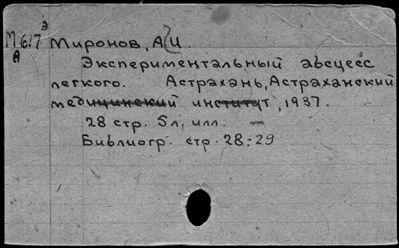 э
М617 Миронов, А.И.
А
Экспериментальный абсцесс
легкого. Астрахань, Астраханский
медицинский институт, 1937.
28 стр. 5 л. илл. —
Библиогр. стр. 28-29